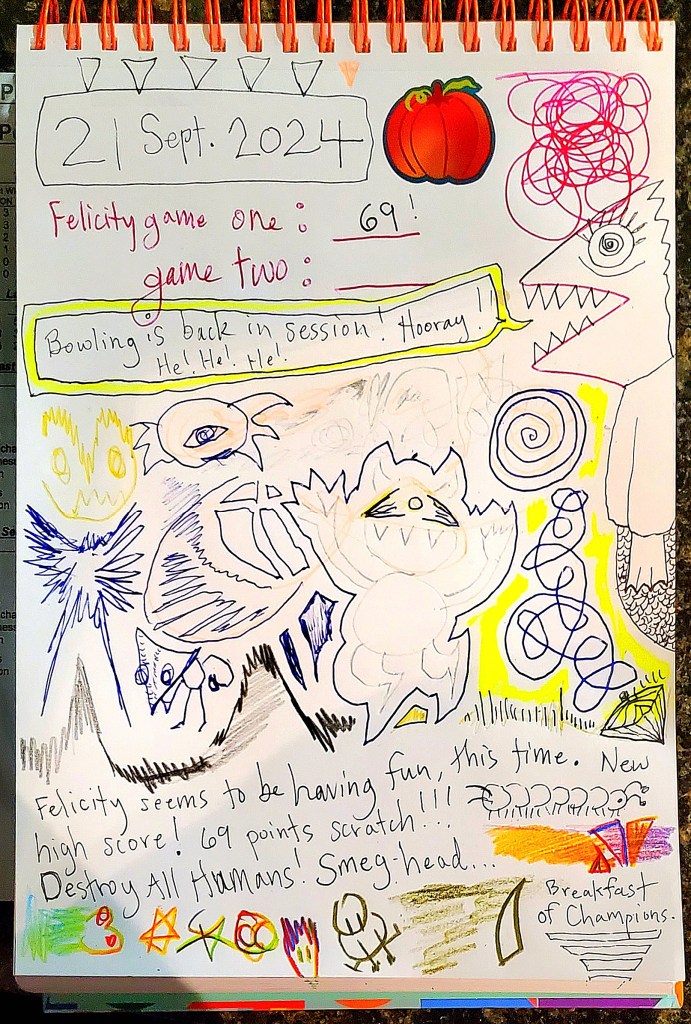 21 Sept. 2024
Felicity game one: 69!
game two:
Bowling is back in session! Hooray!!
He! He! He!
Felicity seems to be having fun, this time. New
high score! 69 points scratch!!!...
Destroy All Humans! Smeg-head...
Breakfast
of Champions.